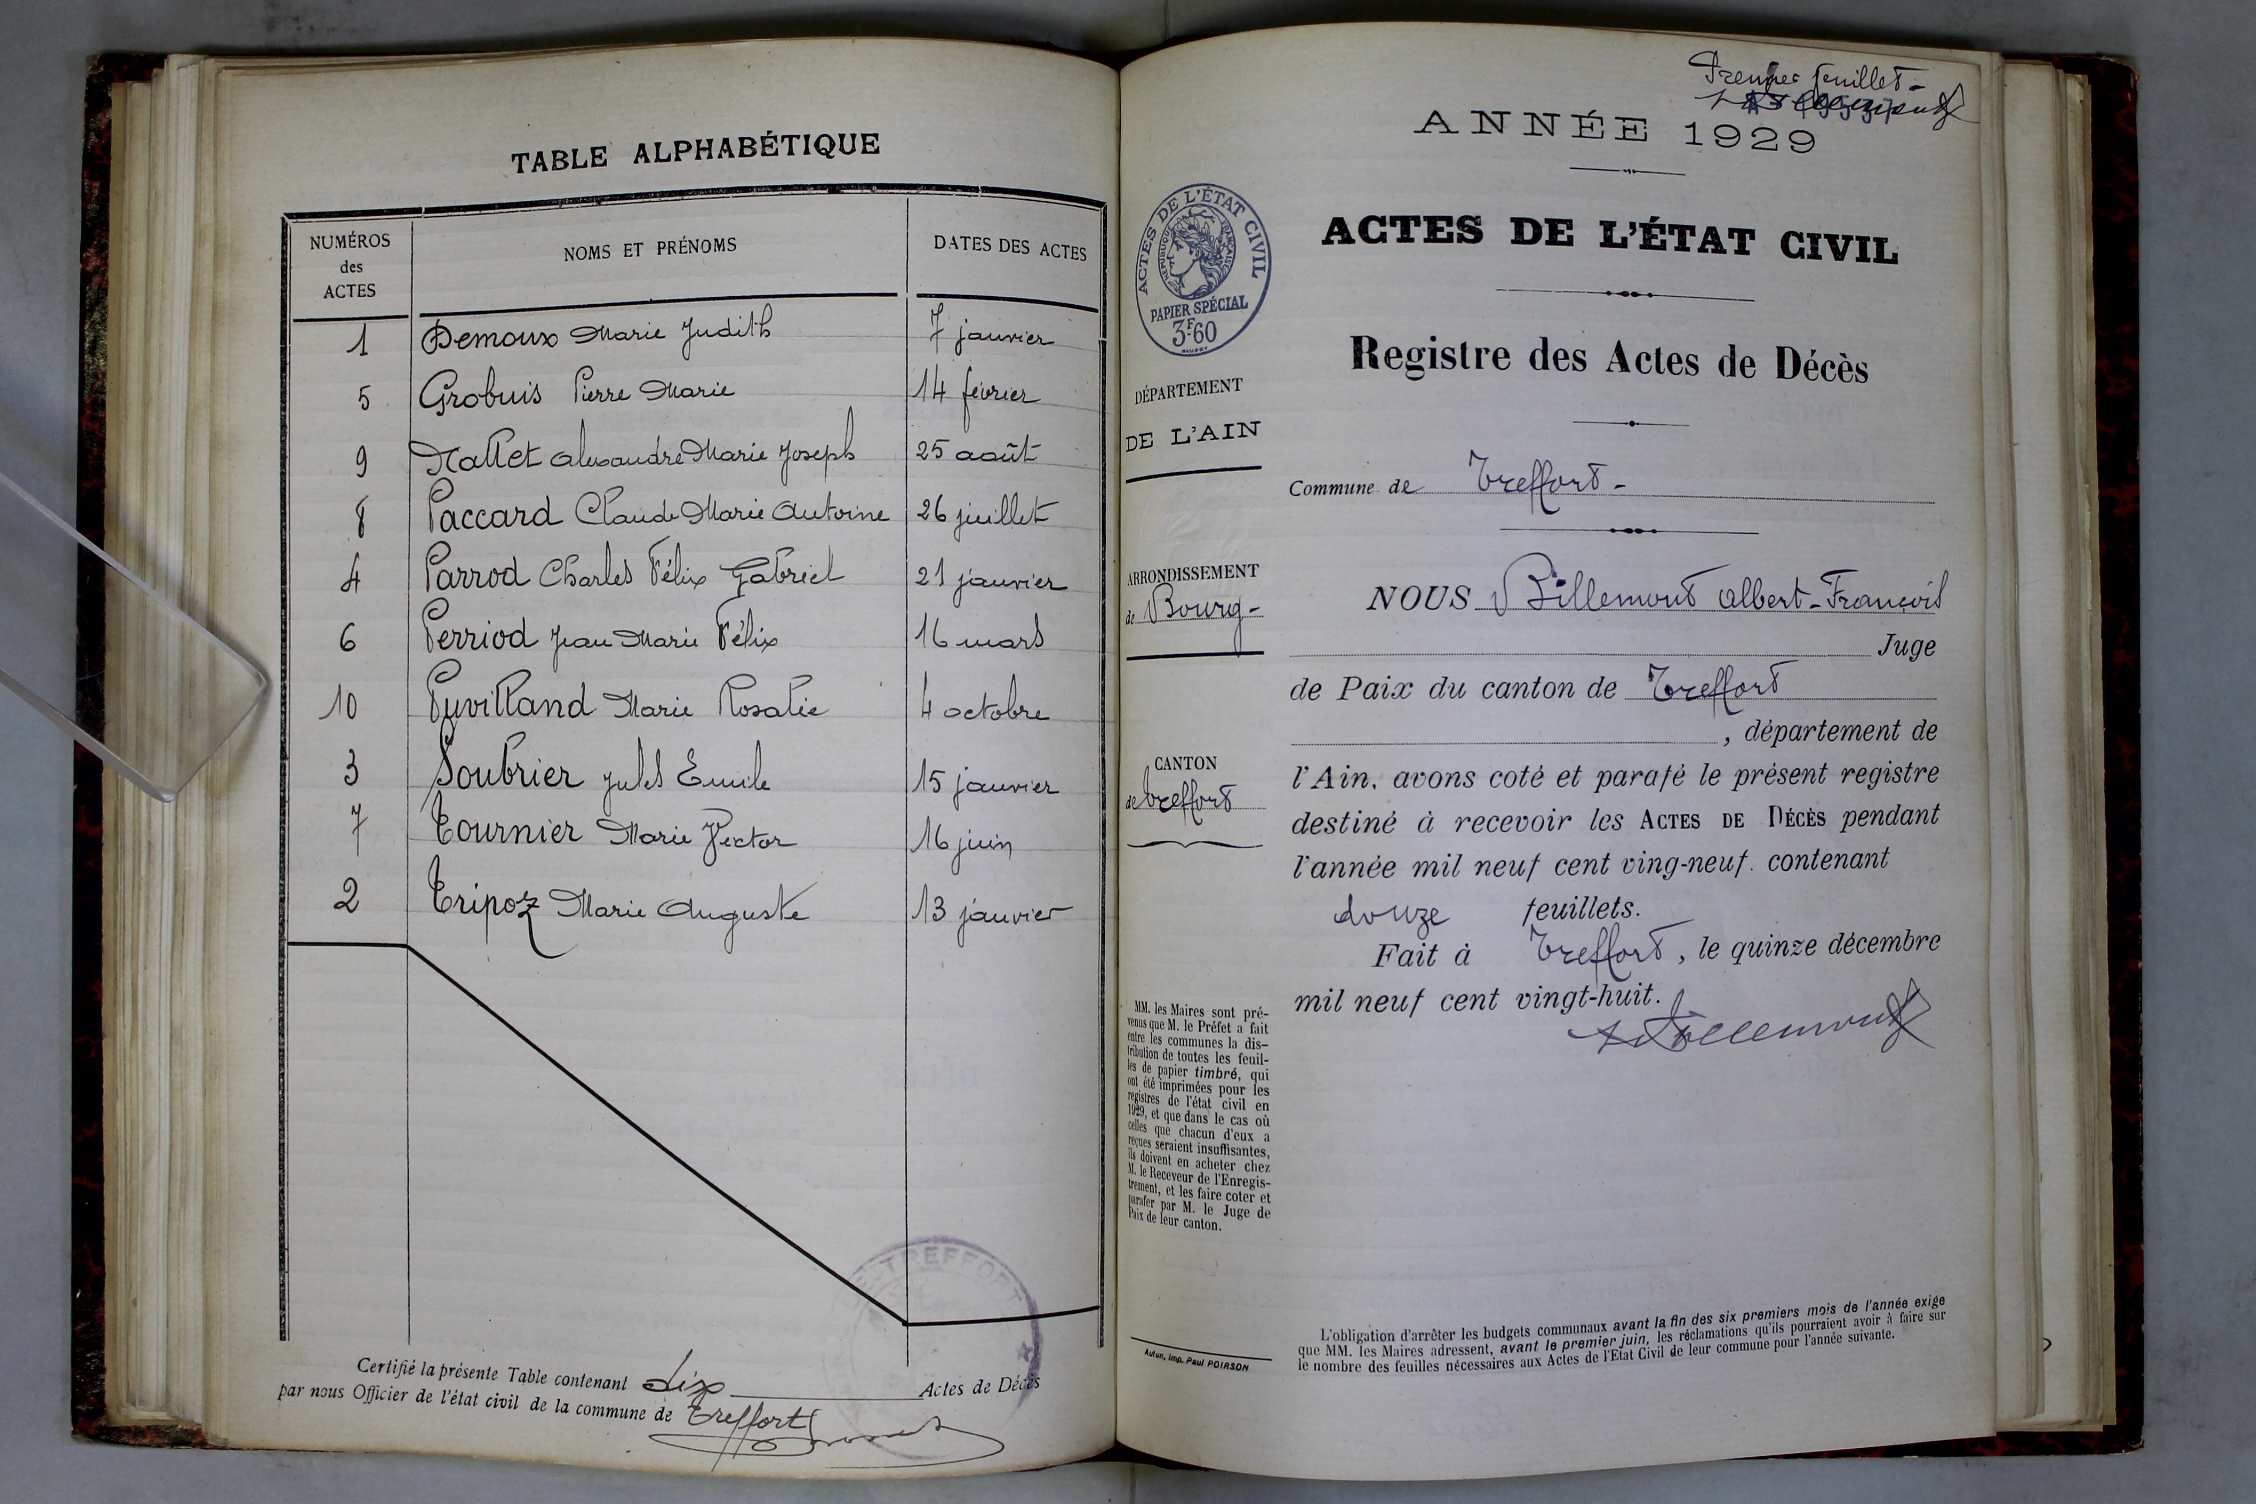 TABLE ALPHABÉTIQUE
NUMÉROS des ACTES NOMS ET PRÉNOMS DATES DES ACTES
1 Demoux Marie Judith 7 janvier
5 Grobuis Pierre Marie 14 février
9 Nallet Alexandre Marie Joseph 25 août
8 Paccard Claude Marie Antoine 26 juillet
4 Parrod Charles Félix Gabriel 21 janvier
6 Perriod Jean Marie Félix 16 mars
10 Puvilland Marie Rosalie 4 octobre
3 Soubrier Jules Emile 15 janvier
7 Tournier Marie Hector 16 juin
2 Tripoz Marie Auguste 13 janvier
TREFFORT
Certifié la présente Table contenant dix Actes de Décès
par nous Officier de l'état civil de la commune de Treffort
Premier feuillet -
ANNÉE 1929
ACTES DE L'ÉTAT CIVIL
Registre des Actes de Décès
ACTES DE L'ÉTAT CIVIL
RÉPUBLIQUE FRANÇAISE
PAPIER SPÉCIAL
3F.60
DÉPARTEMENT
DE L'AIN
ARRONDISSEMENT
de Bourg -
CANTON
de Treffort
MM. les Maires sont pré-
venus que M. le Préfet a fait
entre les communes la dis-
tribution de toutes les feuil-
les de papier timbré, qui
ont été imprimées pour les
registres de l'état civil en
1929, et que dans le cas où
celles que chacun d'eux a
reçues seraient insuffisantes,
ils doivent en acheter chez
M. le Receveur de l'Enregis-
trement, et les faire coter et
parafer par M. le Juge de
Paix de leur canton.
Autun, Imp. Paul POIRSON
Commune de Treffort -
NOUS Billemont Albert-François
Juge
de Paix du canton de Treffort
, département de
l'Ain, avons coté et parafé le présent registre
destiné à recevoir les ACTES DE DÉCÈS pendant
l'année mil neuf cent ving-neuf. contenant
douze feuillets.
Fait à Treffort, le quinze décembre
mil neuf cent vingt-huit.
ABillemont
L'obligation d'arrêter les budgets communaux avant la fin des six premiers mois de l'année exige
que MM. les Maires adressent, avant le premier juin, les réclamations qu'ils pourraient avoir à faire sur
le nombre des feuilles nécessaires aux Actes de l'Etat Civil de leur commune pour l'année suivante.